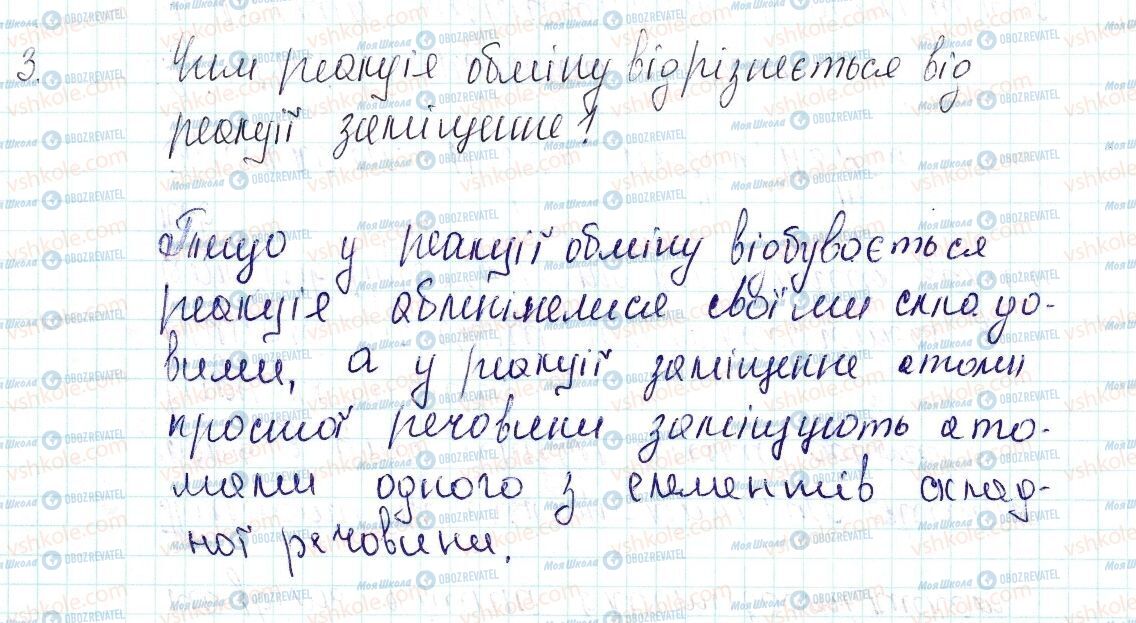 3. Чим реакція обміну відрізняється від
реакції заміщення?
Якщо у реакції обміну відбувається
реакція обмінімемися своїми складо-
вими, а у реакції заміщення атоми
простої речовини заміщують ато-
мами одного з елементів склад-
ної речовини.